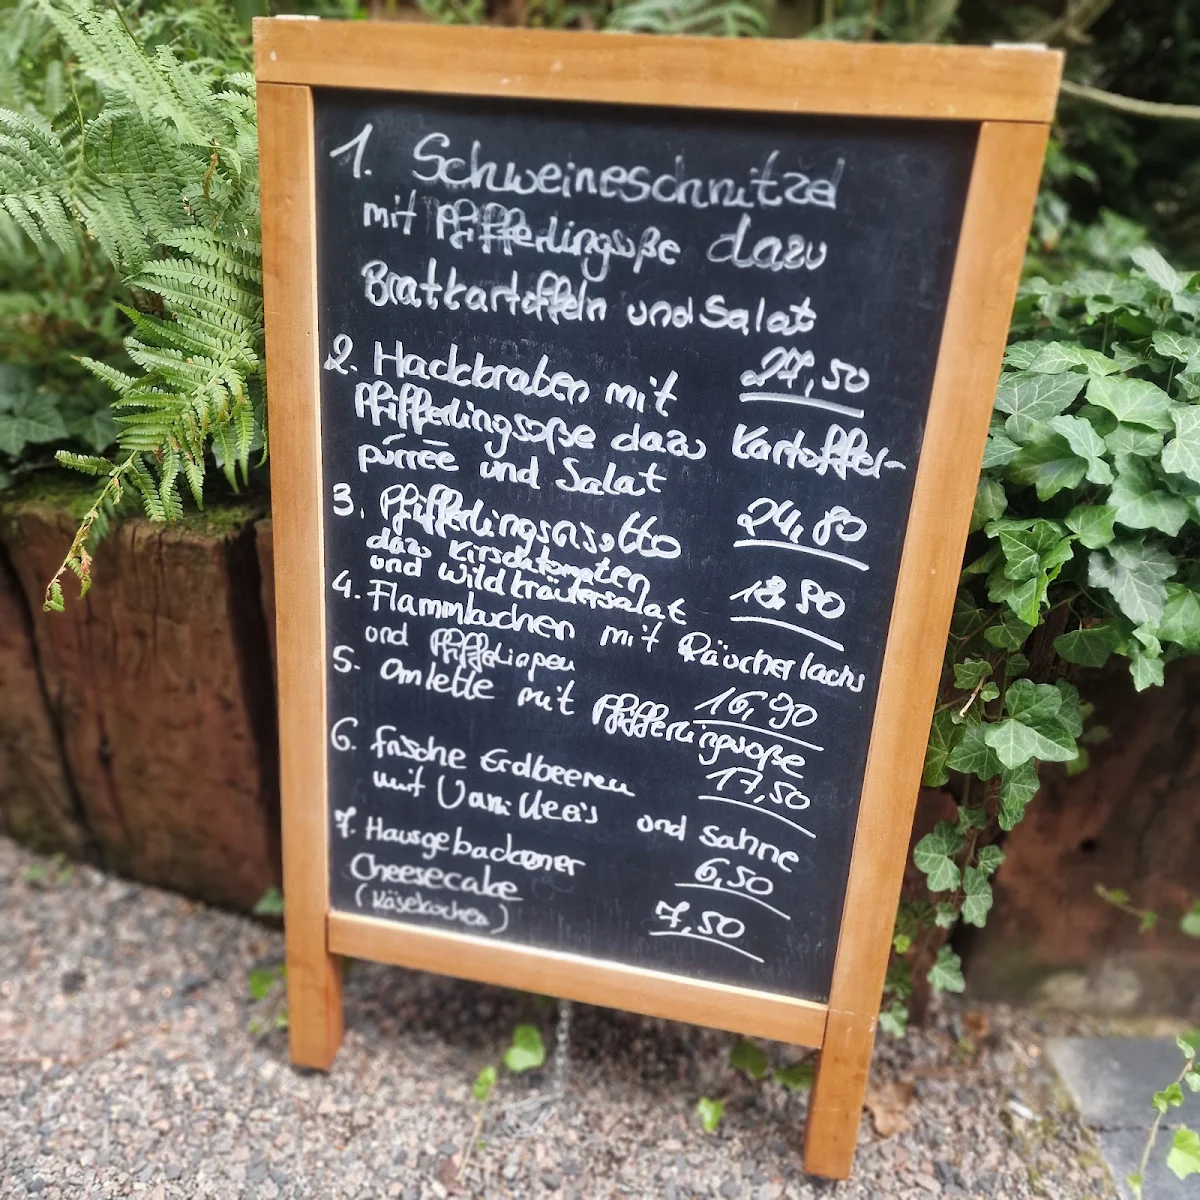 1. Schweineschnitzel
mit Pfifferlingsoße dazu
Bratkartoffeln und Salat
27,50
2. Hackbraten mit
Pfifferlingsoße dazu Kartoffel-
pürrée und Salat
24,80
3. Pfifferlingsrisotto
dazu Kirschtomaten
und Wildkräutersalat
18,90
4. Flammkuchen mit Räucherlachs
und Pfifferlingen
16,90
5. Omlette mit Pfifferlingsoße
17,50
6. frische Erdbeeren
mit Vanilleeis und Sahne
6,50
7. Hausgebackener
Cheesecake
(Käsekuchen)
7,50